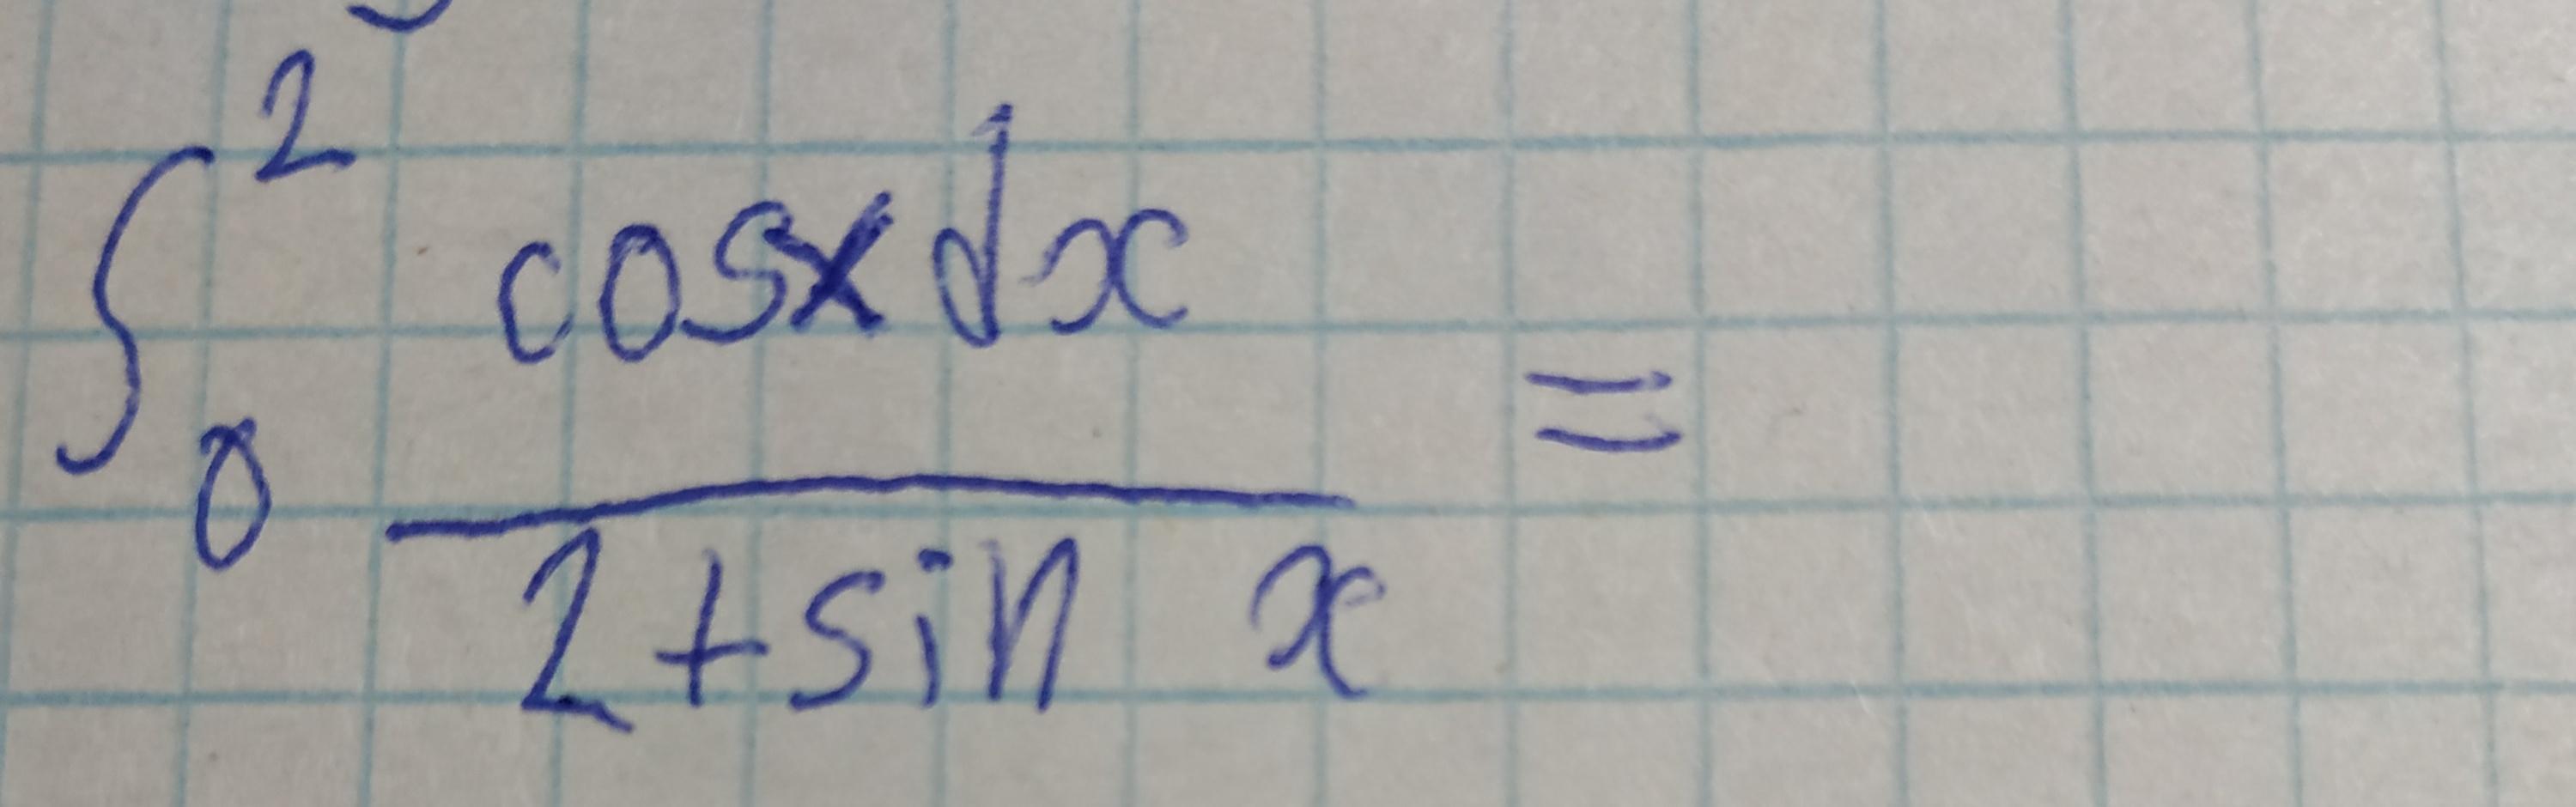 ∫₀² cosx dx / 2+sin x =